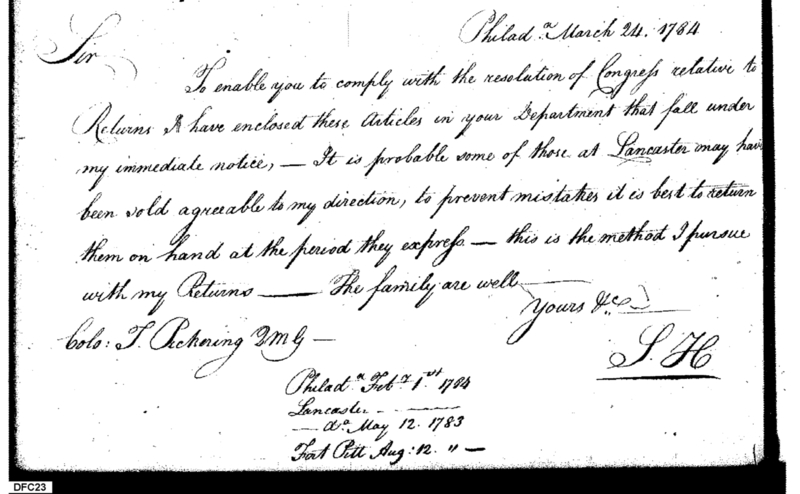 Philad.a March 24. 1784
Sir
To enable you to comply with the resolution of Congress relative to
Returns I have enclosed these Articles in your Department that fall under
my immediate notice, — It is probable some of those at Lancaster may have
been sold agreeable to my direction, to prevent mistakes it is best to return
them on hand at the period they express — this is the method I pursue
with my Returns — The family are well —
Yours &c
Colo: T. Pickering QMG —
S. H
Philad.a Feb.y 1st 1784
Lancaster — —
— do. May 12. 1783
Fort Pitt Aug: 12. " —
DFC23